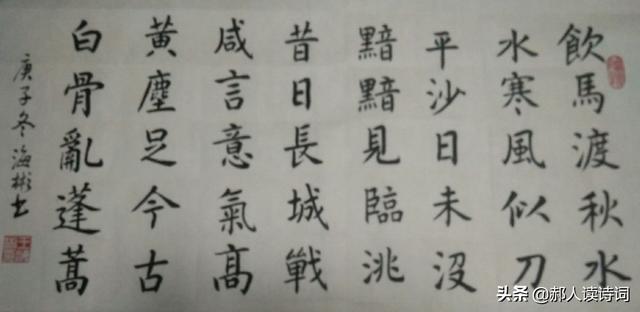 飲馬渡秋水
水寒風似刀
平沙日未沒
黯黯見臨洮
昔日長城戰
咸言意氣髙
黃塵足今古
白骨亂蓬蒿
庚子冬海彬书
头条 @郝人读诗词